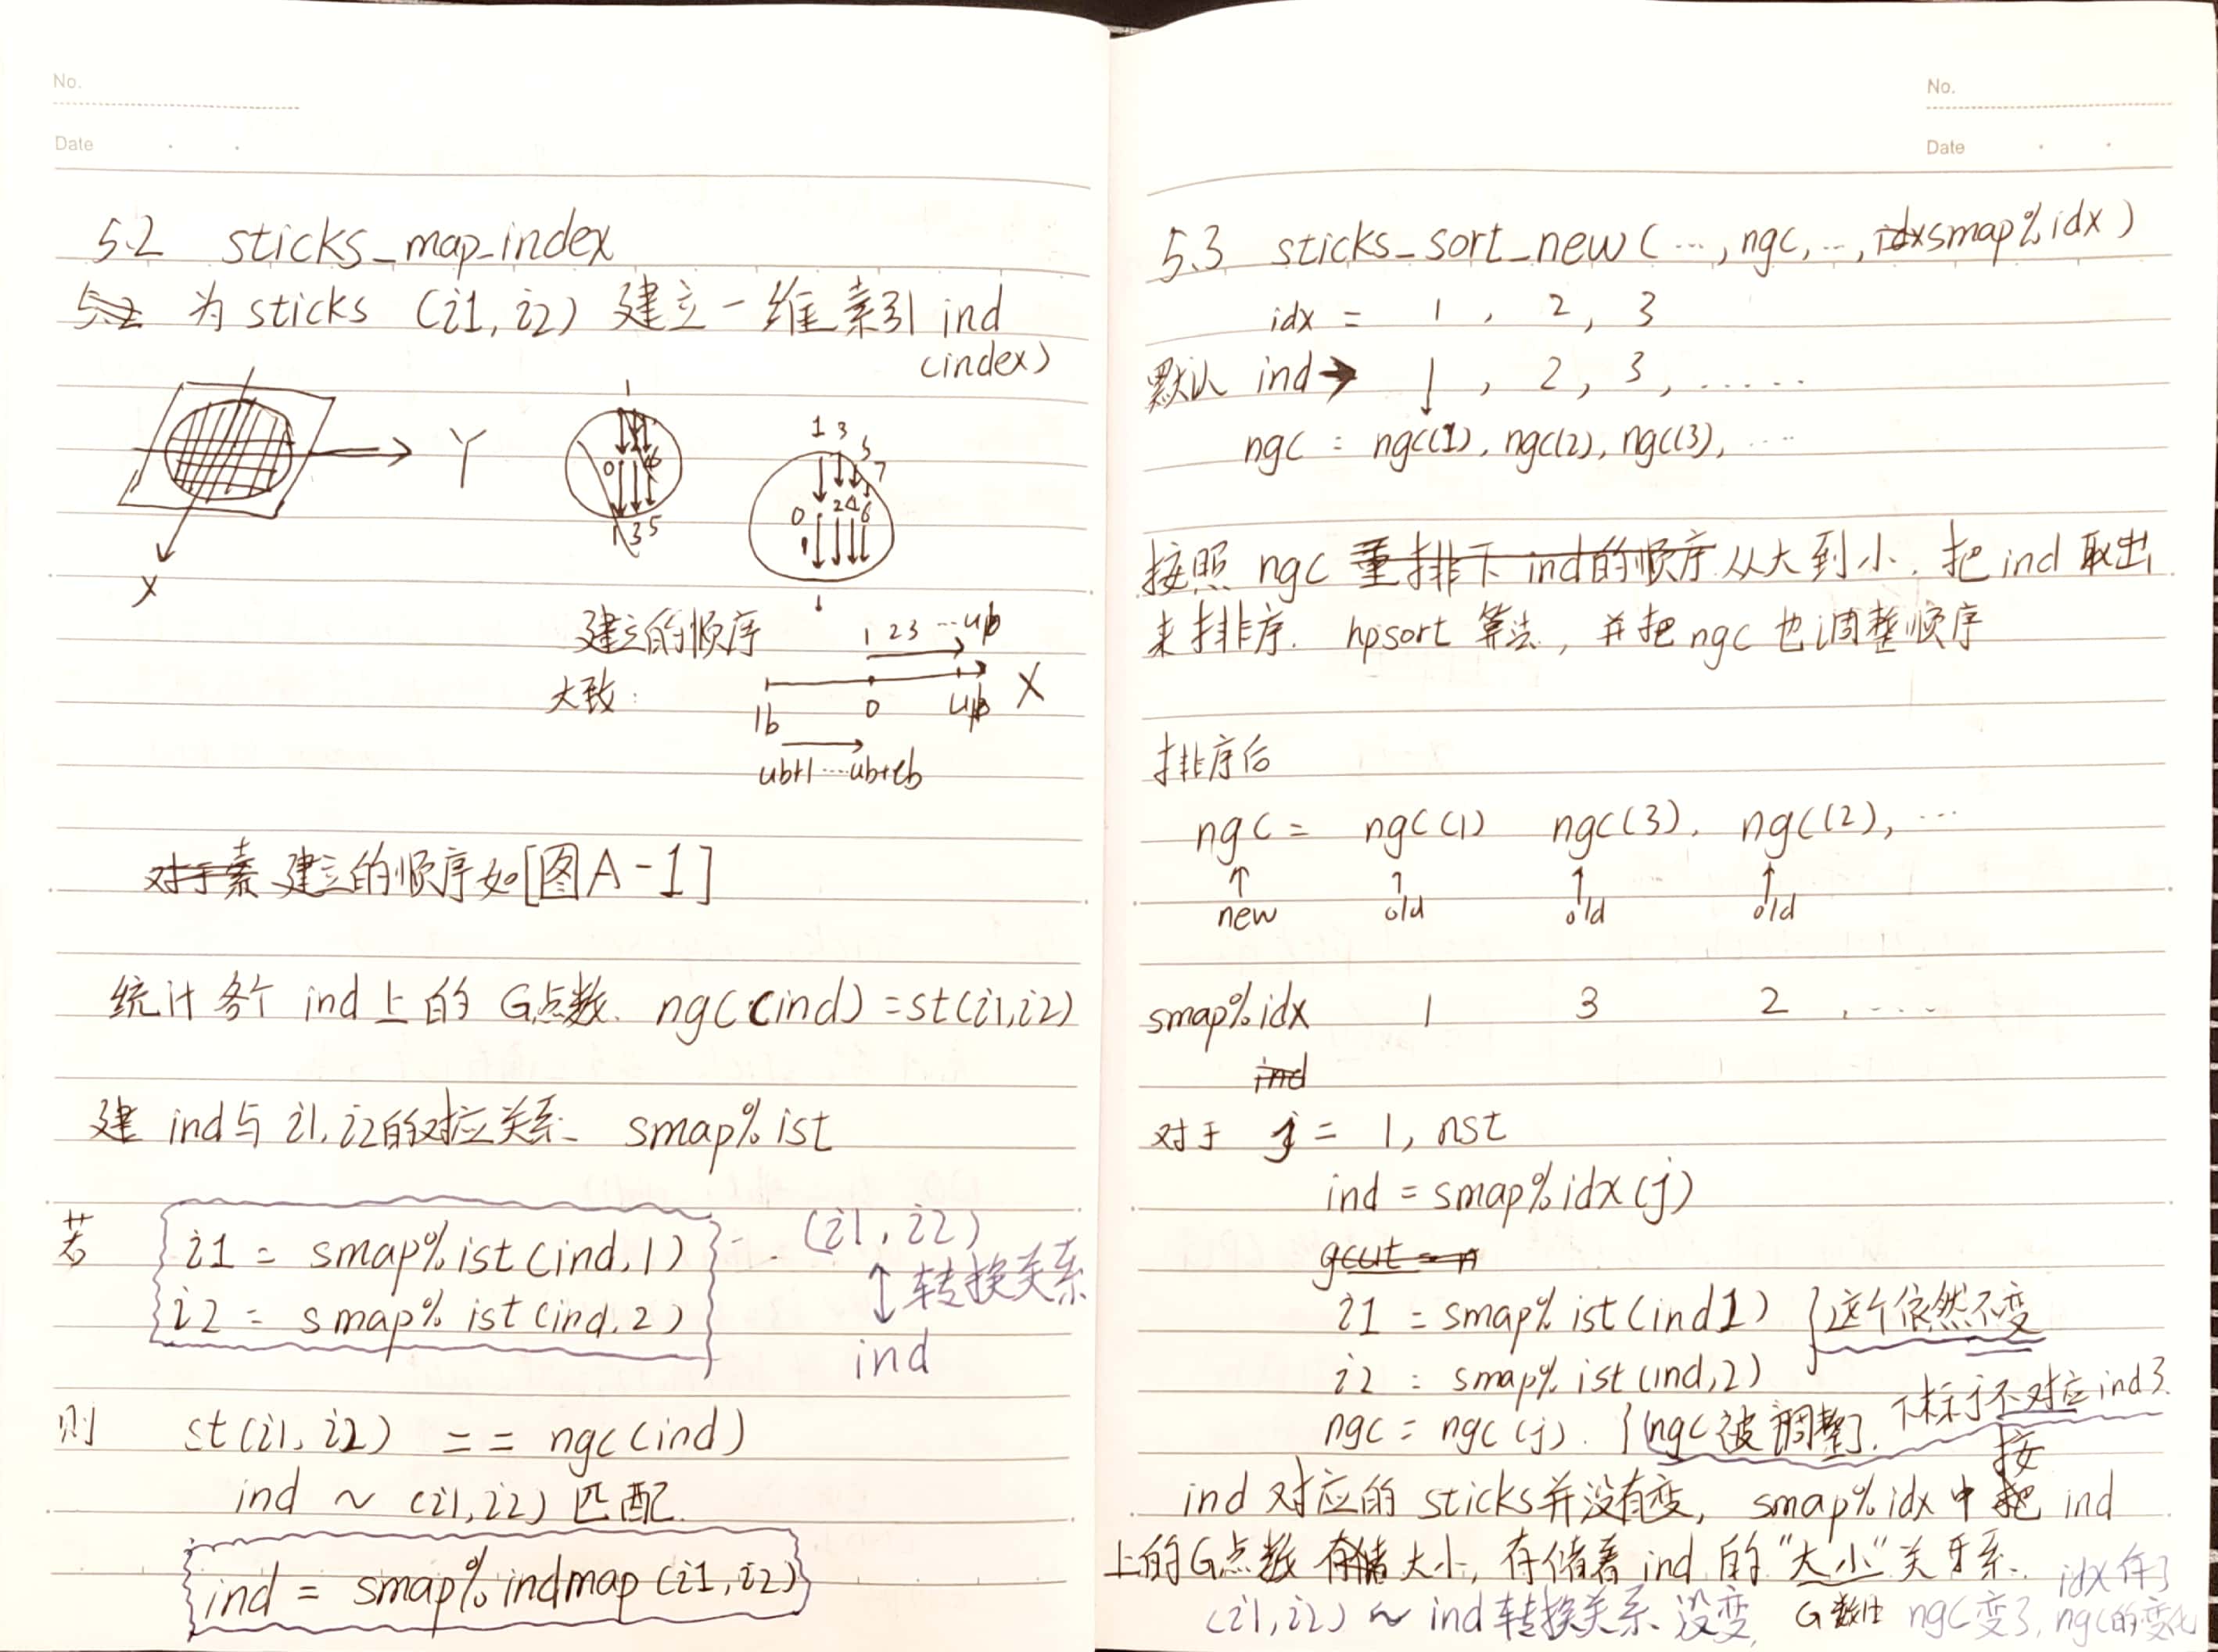 No.
Date
5.2 sticks_map_index
为 sticks (i1, i2) 建立一维索引 ind
(index)
Y
X
1
0
6
1 3 5
1 3 5 7
0 2 4 6
1
建立的顺序
1 2 3 ... ub
大致:
lb 0 ub X
ub+1 ... ub+lb
建立的顺序如[图A-1]
统计各个 ind 上的 G点数. ngc(ind) = st(i1,i2)
建 ind与 i1, i2的对应关系 smap%ist
若 i1 = smap%ist(ind,1)
i2 = smap%ist(ind,2)
(i1, i2)
↕ 转换关系
ind
则 st(i1, i2) == ngc(ind)
ind ~ (i1, i2) 匹配.
ind = smap%indmap(i1,i2)
No.
Date
5.3 sticks_sort_new(..., ngc, ..., smap%idx)
idx = 1, 2, 3
默认 ind → 1, 2, 3, ......
ngc = ngc(1), ngc(2), ngc(3), ....
按照 ngc 重排下 ind的顺序 从大到小. 把 ind 取出
来排序. hpsort 算法, 并把 ngc 也调整顺序
排序后
ngc = ngc(1) ngc(3), ngc(2), ...
↑ ↑ ↑ ↑
new old old old
smap%idx 1 3 2 , ....
ind
对于 j = 1, nst
ind = smap%idx(j)
i1 = smap%ist(ind1) } 这个依然不变
i2 = smap%ist(ind,2)
ngc = ngc(j). } (ngc 被调整了. 下标j不对应ind了.
ind 对应的 sticks并没有变, smap%idx 中 按 ind
上的G点数 大小, 存储着 ind 的"大小"关系.
(i1,i2) ~ ind 转换关系 没变, G数 ngc变了, ngc的变化
idx 存了